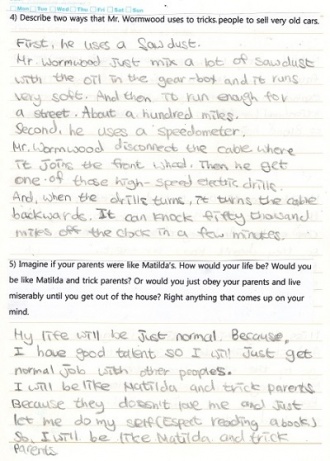 Mon Tue Wed Thu Fri Sat Sun
4) Describe two ways that Mr. Wormwood uses to tricks people to sell very old cars.
First, he uses a sawdust.
Mr. Wormwood just mix a lot of sawdust
with the oil in the gear-box and it runs
very soft. And then it run enough for
a street. About a hundred miles.
Second, he uses a speedometer.
Mr. Wormwood disconnect the cable where
it joins the front wheel. Then he get
one of those high-speed electric drills.
And, when the drills turns, it turns the cable
backwards. It can knock fifty thousand
miles off the clock in a few minutes.
5) Imagine if your parents were like Matilda's. How would your life be? Would you
be like Matilda and trick parents? Or would you just obey your parents and live
miserably until you get out of the house? Right anything that comes up on your
mind.
My life will be just normal. Because,
I have good talent so I will just get
normal job with other peoples.
I will be like Matilda and trick parents
Because they doesn't love me and just
let me do my self (Espert reading a book)
So, I will be like Matilda and trick
parents